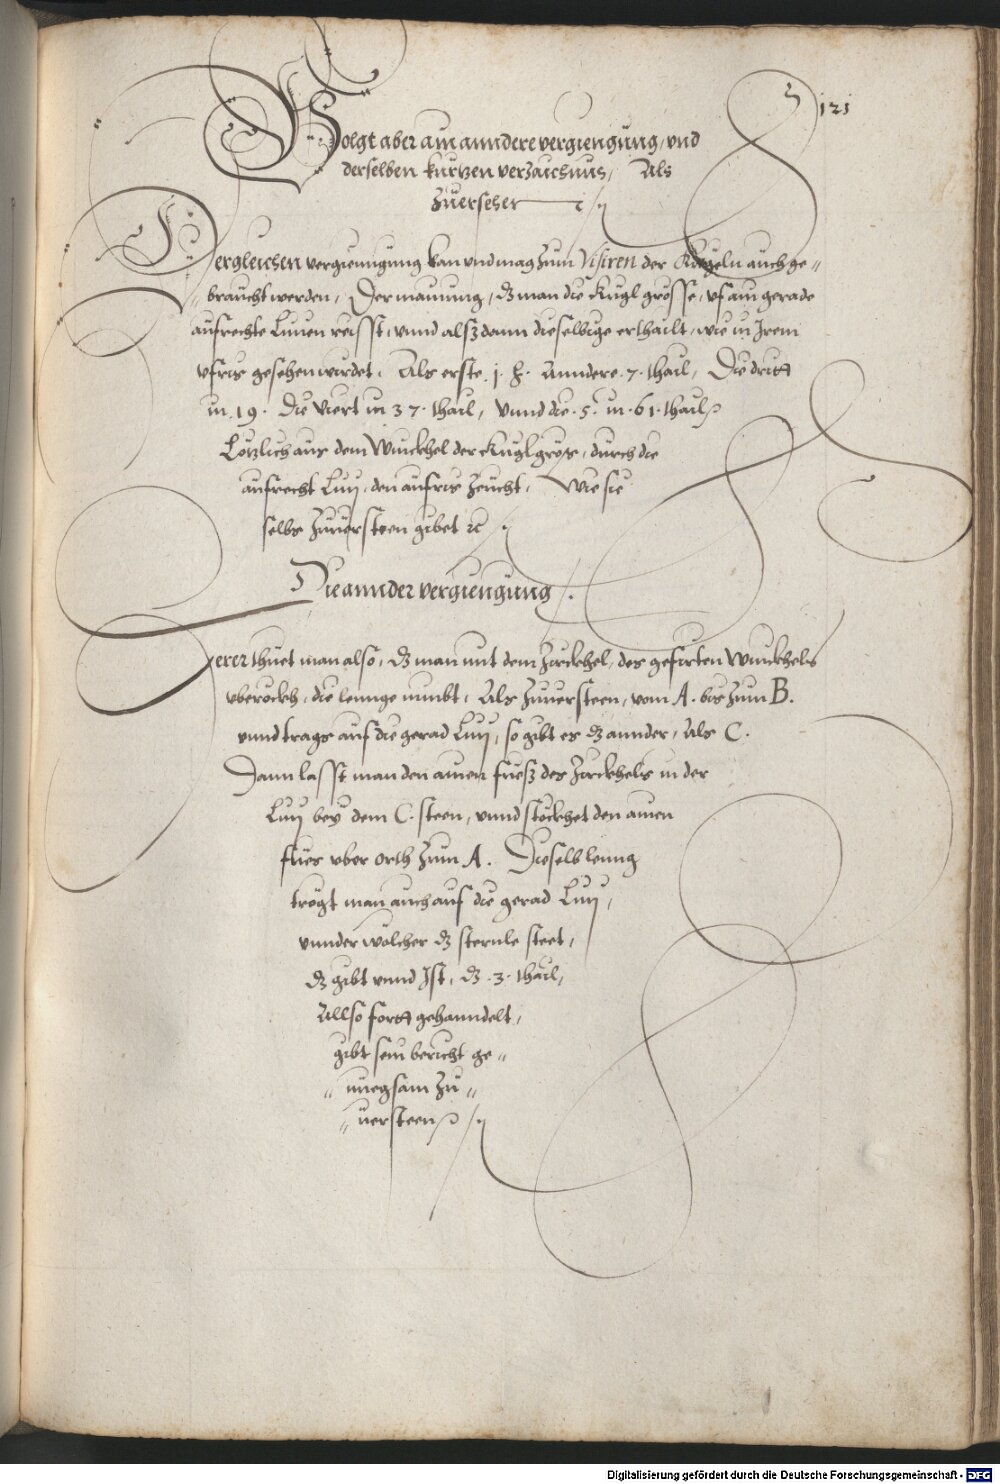 121
Volgt aber ain anndere verglengung, vnd
derselben kurtzen verzaichnus, Als
Zuersehen
Dergleichen vergleungung kan vnd mag zum Visiren der Kugeln auch ge„
„braucht werden, Der mainung, dz man die Kugl grosse, vf ain gerade
aufrechte Linien reisst, vnnd alsz dann dieselbige erthailt, wie in Irem
vfris gesehen wirdet. Als erste .1. Anndere .7. thail, Die dritt
in .19. Die viert in 37. thail, Vnnd die .5. in .61. thail
Lötzlich aus dem Winckhel der Kugl grös, durch die
aufrecht Linj, den aufris Zeucht, Wie sie
selbs Zuuersteen gibet
Die annder vergleugung.
Jerer thuet man also, dz man mit dem Zirckhel, des gefirten Winckhels
vberöckh, die lennge nimbt, Als Zuuersteen, vom A. bis Zum B.
vnnd trags auf die gerad Linj, so gibt es dz annder, Als C.
Dann lasst man den ainen fuesz des Zirckhels in der
Linj bey dem C. steen, vnnd stöckhet den ainen
fues vber orth Zum A. Dieselb leng
trögt man auch auf die gerad Linj,
vnnder wölcher dz sternle steet,
dz gibt vnnd Ist, dz .3. thail,
Allso fortt gehanndelt,
gibt sein bericht ge„
„nuegsam Zu„
„uersteen
Digitalisierung gefördert durch die Deutsche Forschungsgemeinschaft - DFG